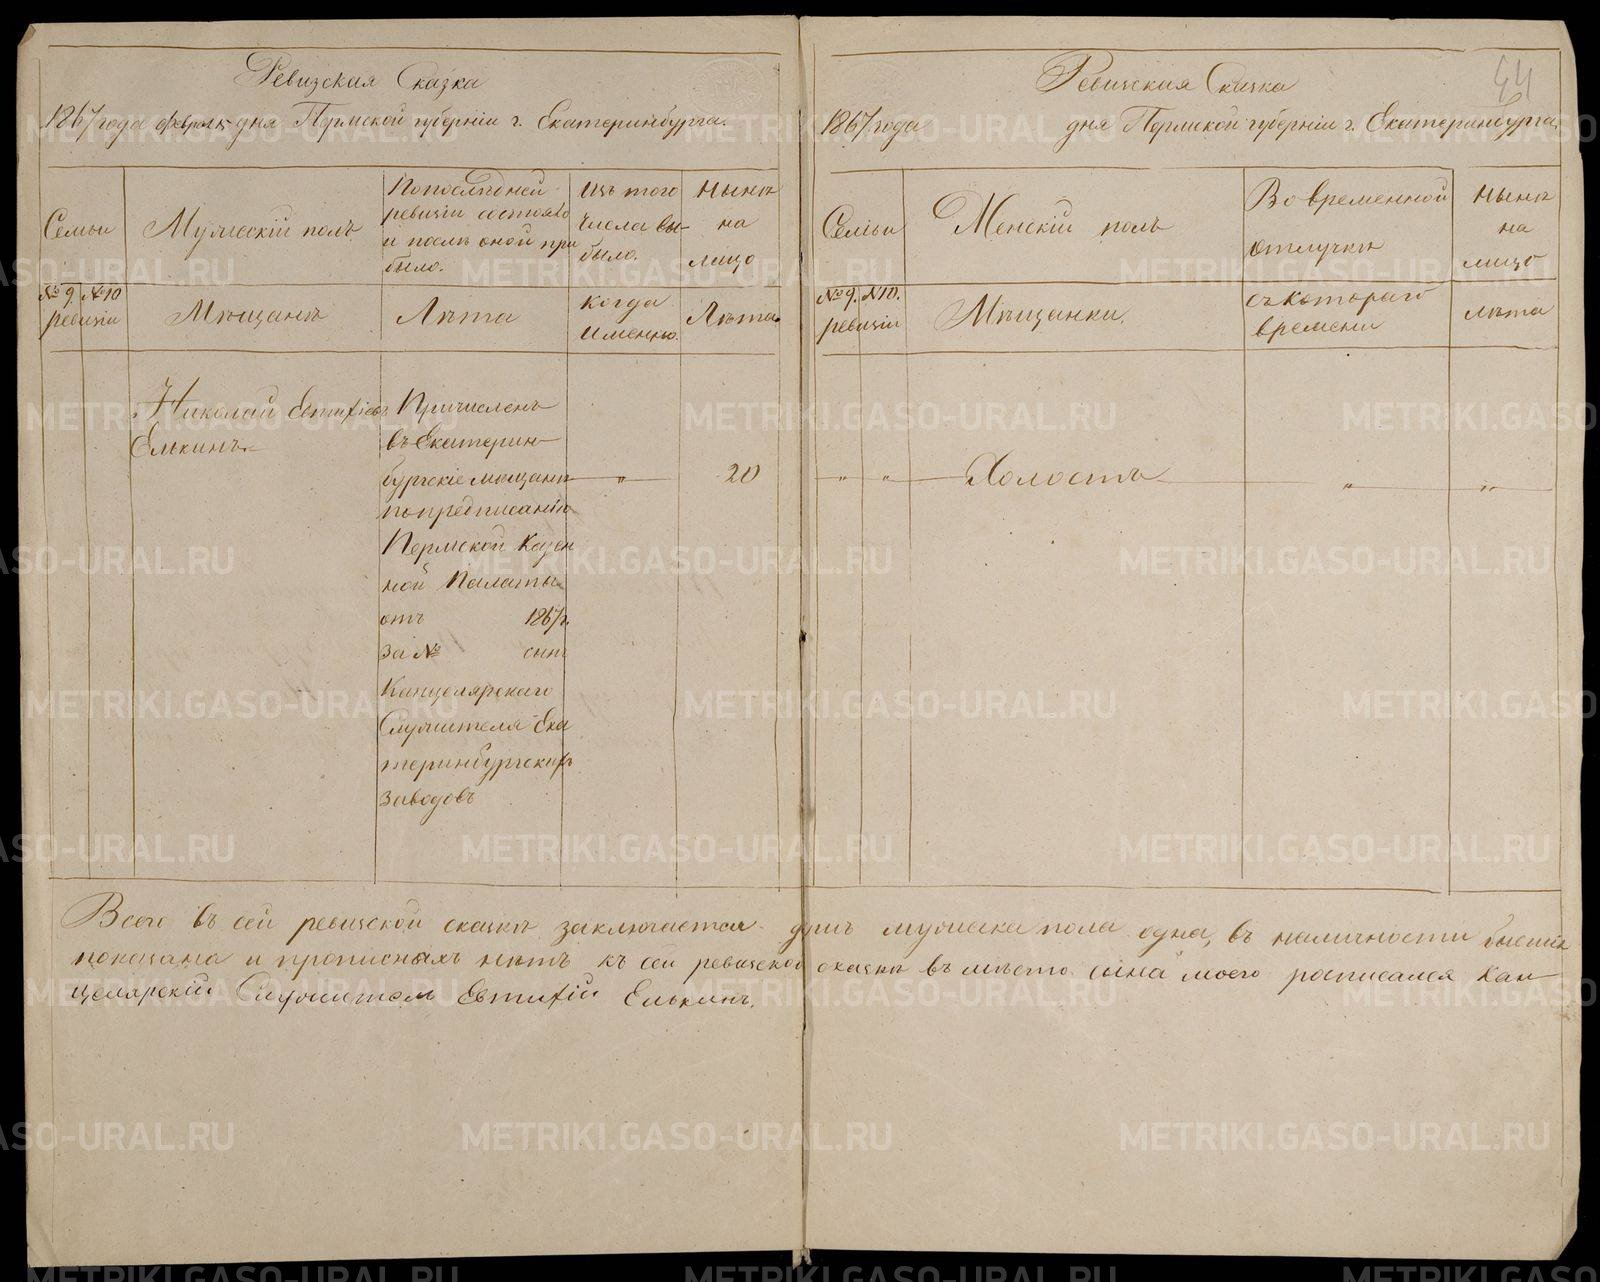 Ревизская Сказка
1867 года февраля дня Пермской губерніи г. Екатеринбурга.
Семьи
Мужескій полъ
По послѣдней
ревизіи состояло
и послѣ оной при
было.
Изъ того
числа вы-
было.
Нынѣ
на
лицо
№ 9. № 10
ревизіи
Мѣщанѣ
Лѣта
когда
именно.
Лѣта.
Николай Евтифіевъ
Елькинъ
Причисленъ
въ Екатерин-
бургскіе мѣщане
по предписанію
Пермской Казен
ной Палаты
отъ 1867 г.
за № сынъ
Канцелярскаго
Служителя Ека
теринбургскихъ
заводовъ
"
20
44
Ревизская Сказка
1867 года дня Пермской губерніи г. Екатеринбурга.
Семьи
Женскій полъ
Во временной
отлучкѣ
Нынѣ
на
лицо
№ 9. № 10.
ревизіи
Мѣщанки.
съ котораго
времени
лѣта
" " Холостъ " "
Всего въ сей ревизской сказкѣ заключается душъ мужеска пола одна, въ наличности
показана и прописныхъ нѣтъ къ сей ревизской сказкѣ въ мѣсто сына моего росписался Кан-
целярскій Служитель Евтифій Елькинъ.
METRIKI.GASO-URAL.RU